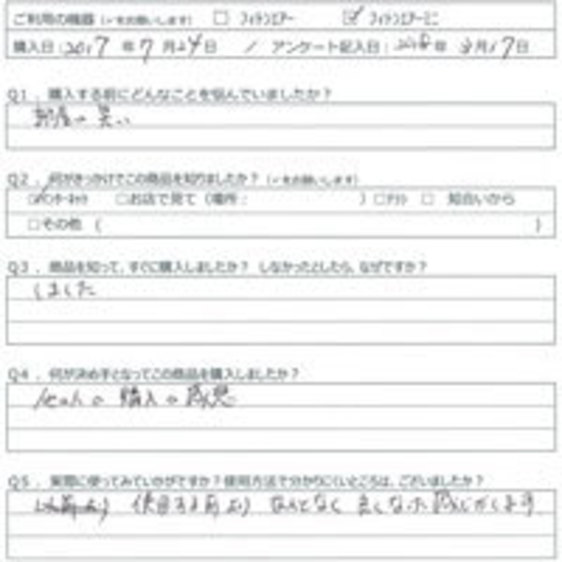 ご利用の機器（✓をお願いします） □ フィトンエアー ☑ フィトンエアーミニ
購入日：2017 年 7 月 24 日 / アンケート記入日：2018 年 3 月 17 日
Q1．購入する前にどんなことを悩んでいましたか？
部屋の臭い
Q2．何がきっかけでこの商品を知りましたか？（✓をお願いします）
☑インターネット □お店で見て（場所： ）□チラシ □ 知合いから
□その他（ ）
Q3．商品を知って、すぐに購入しましたか？ しなかったとしたら、なぜですか？
しました
Q4．何が決め手となってこの商品を購入しましたか？
の 購入の感想
Q5．実際に使ってみていかがですか？使用方法で分かりにくいところは、ございましたか？
使用する前より なんとなく 良くなった 感じがします